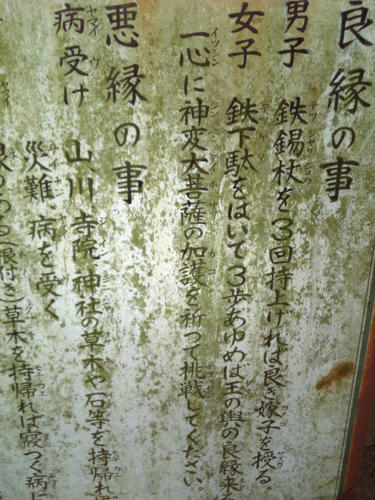 良縁の事
男子 鉄錫杖を3回持上げれば良き嫁子を授る。
女子 鉄下駄をはいて3歩あゆめば玉の輿の良縁来
一心に神変大菩薩の加護を祈つて挑戦してください。
悪縁の事
病受け 山川 寺院 神社の草木や石等を持帰れ
災難 病を受く。
(根付き)草木を持帰れば寝つく病に